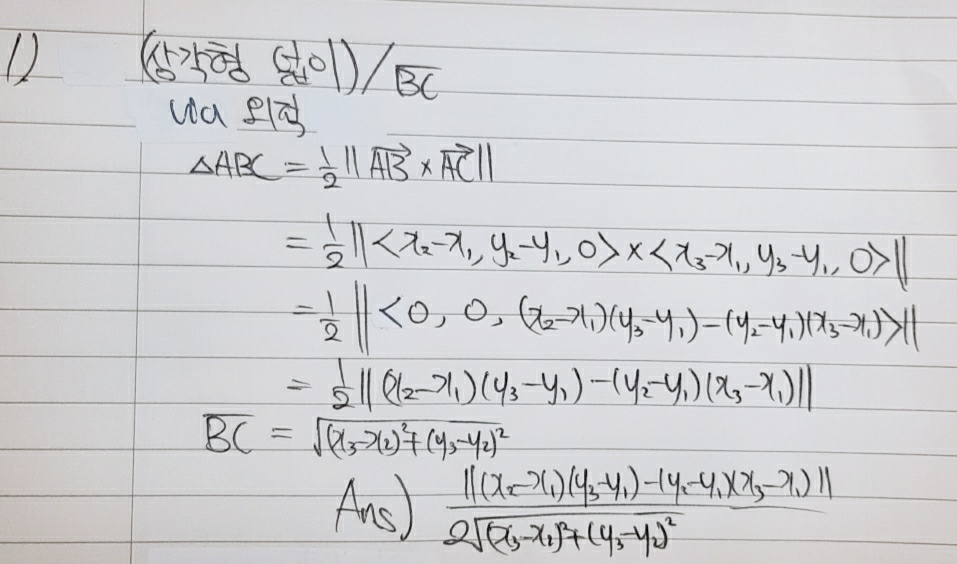 1) (삼각형 넓이)/B̅C̅
via 외적
△ABC = ½‖AB⃗ × AC⃗‖
= ½‖<x₂-x₁, y₂-y₁, 0> × <x₃-x₁, y₃-y₁, 0>‖
= ½‖<0, 0, (x₂-x₁)(y₃-y₁)-(y₂-y₁)(x₃-x₁)>‖
= ½‖(x₂-x₁)(y₃-y₁)-(y₂-y₁)(x₃-x₁)‖
B̅C̅ = √((x₃-x₂)²+(y₃-y₂)²)
Ans) ‖(x₂-x₁)(y₃-y₁)-(y₂-y₁)(x₃-x₁)‖ / 2√((x₃-x₂)²+(y₃-y₂)²)